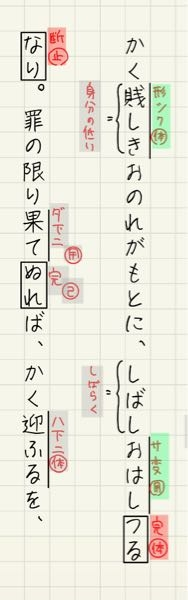 かく賤しきおのれがもとに、しばしおはしつる
形シク体
身分の低い
=
しばらく
=
サ変用
完体
なり。罪の限り果てぬれば、かく迎ふるを、
断止
タ下二用
完已
ハ下二体